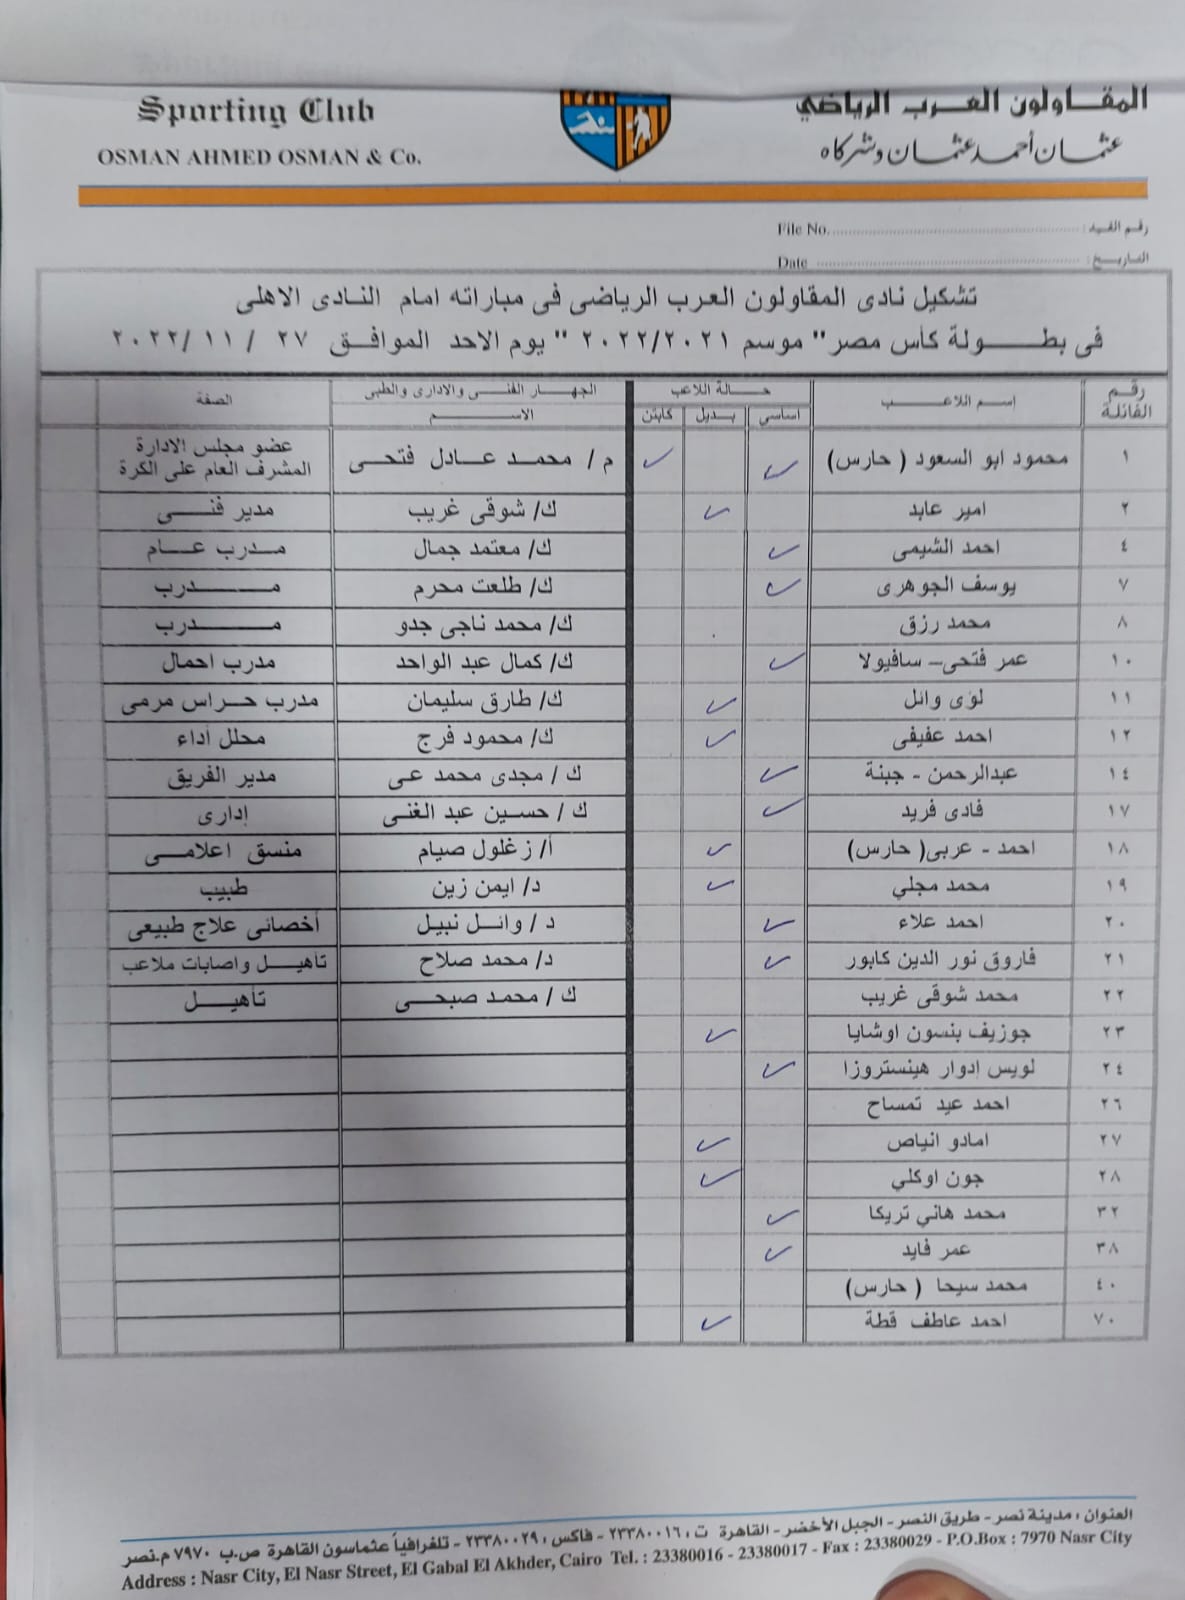 Sporting Club
المقاولون العرب الرياضي
OSMAN AHMED OSMAN & Co.
عثمان أحمد عثمان وشركاه
File No. رقم القيد :
Date التاريخ :
تشكيل نادى المقاولون العرب الرياضى فى مباراته امام النادى الاهلى
فى بطــولة كأس مصر" موسم ٢٠٢٢/٢٠٢١ " يوم الاحد الموافـق ٢٧ / ١١ /٢٠٢٢
رقم الفانلة إسـم اللاعـــب حــالة اللاعب الجهـاز الفنى والادارى والطبى الصفة
اساسى بـديل كابتن الاســـم
١ محمود ابو السعود ( حارس) ✓ ✓ م / محمـد عـادل فتحـى عضو مجلس الادارة المشرف العام على الكرة
٢ امير عابد ✓ ك/ شوقى غريب مدير فنـى
٤ احمد الشيمى ✓ ك/ معتمد جمال مـدرب عـام
٧ يوسف الجوهرى ✓ ك/ طلعت محرم مـــدرب
٨ محمد رزق ك/ محمد ناجى جدو مـــدرب
١٠ عمر فتحى– سافيولا ✓ ك/ كمال عبد الواحد مدرب احمال
١١ لؤى وائل ✓ ك/ طارق سليمان مدرب حـراس مرمى
١٢ احمد عفيفى ✓ ك/ محمود فرج محلل أداء
١٤ عبدالرحمن - جبنة ✓ ك / مجدى محمد عـى مدير الفريق
١٧ فادى فريد ✓ ك / حسـين عبد الغنـى إدارى
١٨ احمـد - عربى( حارس) ✓ أ/ زغلول صيام منسق اعلامـى
١٩ محمد مجلي ✓ د/ ايمن زين طبيب
٢٠ احمد علاء ✓ د / وائـل نبيـل أخصائى علاج طبيعى
٢١ فاروق نور الدين كابور ✓ د/ محمد صلاح تأهيـل واصابات ملاعب
٢٢ محمد شوقى غريب ك / محمـد صبحـى تأهيـل
٢٣ جوزيف بنسون اوشايا ✓
٢٤ لويس إدوار هينستروزا ✓
٢٦ احمد عيد تمساح
٢٧ امادو انياص ✓
٢٨ جون اوكلي ✓
٣٢ محمد هاني تريكا ✓
٣٨ عمر فايد ✓
٤٠ محمد سيحا ( حارس)
٧٠ احمد عاطف قطة ✓
العنوان : مدينة نصر - طريق النصر - الجبل الأخضر - القاهرة ت : ٢٣٣٨٠٠١٦ - فاكس : ٢٣٣٨٠٠٢٩ - تلغرافياً عثماسون القاهرة ص.ب ٧٩٧٠ م.نصر
Address : Nasr City, El Nasr Street, El Gabal El Akhder, Cairo Tel. : 23380016 - 23380017 - Fax : 23380029 - P.O.Box : 7970 Nasr City